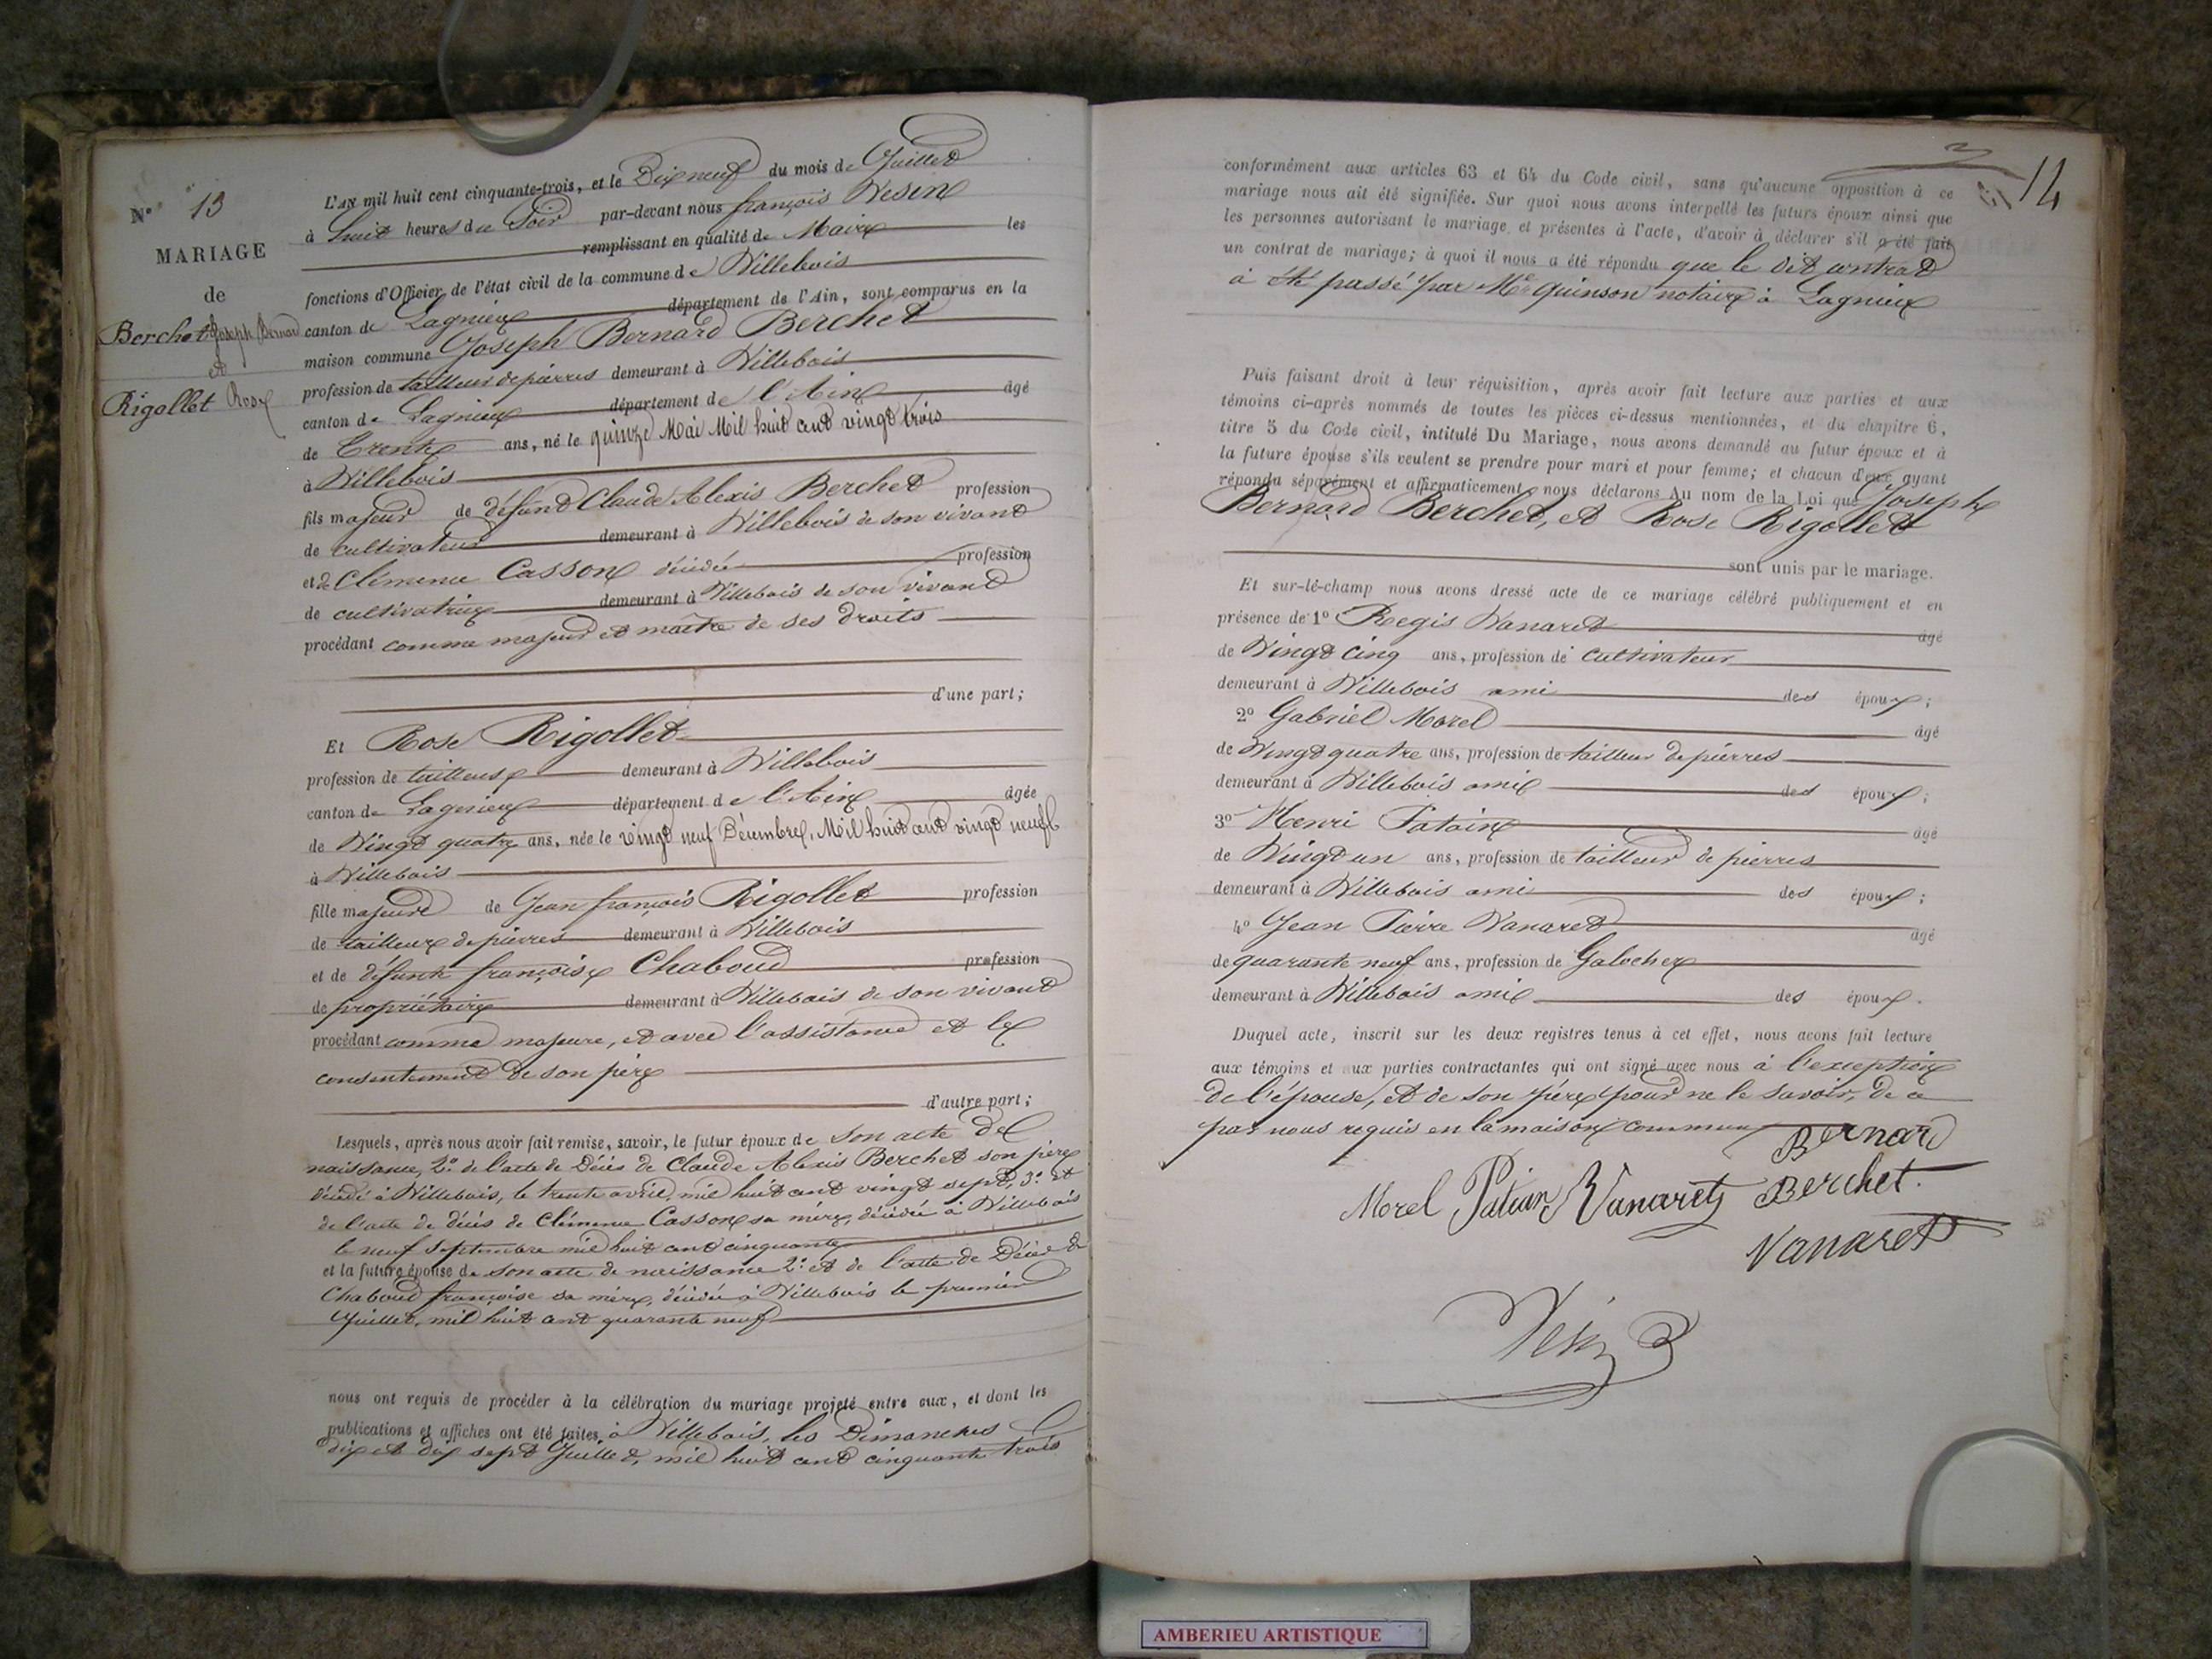 N° 13
MARIAGE
de
Berchet Joseph Bernard
et
Rigollet Rose
L'AN mil huit cent cinquante-trois, et le Dix neuf du mois de Juillet
à huit heures du Soir par-devant nous françois Vesin
remplissant en qualité de Maire les
fonctions d'Officier de l'état civil de la commune de Villebois
canton de Lagnieu département de l'Ain, sont comparus en la
maison commune Joseph Bernard Berchet
profession de tailleur de pierres demeurant à Villebois
canton de Lagnieu département de l'Ain âgé
de Trente ans, né le quinze Mai Mil huit cent vingt trois
à Villebois
fils majeur de défunt Claude Alexis Berchet profession
de cultivateur demeurant à Villebois de son vivant
et de Clémence Casson décédée profession
de cultivatrice demeurant à Villebois de son vivant
procédant comme majeur et maître de ses droits
d'une part;
Et Rose Rigollet
profession de tailleuse demeurant à Villebois
canton de Lagnieu département de l'Ain âgée
de Vingt quatre ans, née le vingt neuf Décembre, Mil huit cent vingt neuf
à Villebois
fille majeure de Jean françois Rigollet profession
de tailleur de pierres demeurant à Villebois
et de défunte françoise Chaboud profession
de propriétaire demeurant à Villebois de son vivant
procédant comme majeure, et avec l'assistance et le
consentement de son père
d'autre part;
Lesquels, après nous avoir fait remise, savoir, le futur époux de son acte de
naissance, 2° de l'acte de Décès de Claude Alexis Berchet son père
décédé à Villebois, le trente avril, mil huit cent vingt sept, 3° et
de l'acte de décès de Clémence Casson sa mère, décédée à Villebois
le neuf Septembre mil huit cent cinquante
et la future épouse de son acte de naissance 2° et de l'acte de Décès de
Chaboud françoise sa mère, décédée à Villebois le premier
Juillet, mil huit cent quarante neuf
nous ont requis de procéder à la célébration du mariage projeté entre eux, et dont les
publications et affiches ont été faites à Villebois, les Dimanches
dix et dix sept Juillet, mil huit cent cinquante trois
14
conformément aux articles 63 et 64 du Code civil, sans qu'aucune opposition à ce
mariage nous ait été signifiée. Sur quoi nous avons interpellé les futurs époux ainsi que
les personnes autorisant le mariage et présentes à l'acte, d'avoir à déclarer s'il a été fait
un contrat de mariage; à quoi il nous a été répondu que le dit contrat
à été passé par Me Quinson notaire à Lagnieu
Puis faisant droit à leur réquisition, après avoir fait lecture aux parties et aux
témoins ci-après nommés de toutes les pièces ci-dessus mentionnées, et du chapitre 6,
titre 5 du Code civil, intitulé Du Mariage, nous avons demandé au futur époux et à
la future épouse s'ils veulent se prendre pour mari et pour femme; et chacun d'eux ayant
répondu séparément et affirmativement nous déclarons Au nom de la Loi que Joseph
Bernard Berchet, et Rose Rigollet
sont unis par le mariage.
Et sur-lé-champ nous avons dressé acte de ce mariage célébré publiquement et en
présence de 1° Regis Vanaret âgé
de Vingt Cinq ans, profession de cultivateur
demeurant à Villebois ami des époux;
2° Gabriel Morel âgé
de Vingt quatre ans, profession de tailleur de pierres
demeurant à Villebois ami des époux;
3° Henri Patain âgé
de Vingt un ans, profession de tailleur de pierres
demeurant à Villebois ami des époux;
4° Jean Pierre Vanaret âgé
de quarante neuf ans, profession de Galocher
demeurant à Villebois ami des époux.
Duquel acte, inscrit sur les deux registres tenus à cet effet, nous avons fait lecture
aux témoins et aux parties contractantes qui ont signé avec nous à l'exception
de l'épouse, et de son père pour ne le savoir, de ce
par nous requis en la maison commune
Bernard
Morel Patain Vanaret Berchet.
Vanaret
Vesin
AMBERIEU ARTISTIQUE